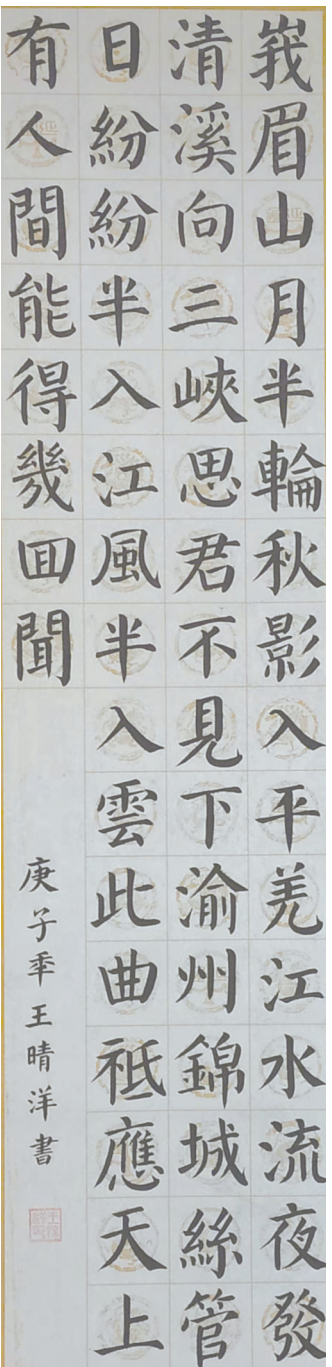 峩眉山月半輪秋影入平羗江水流夜發
清溪向三峽思君不見下渝州錦城絲管
日紛紛半入江風半入雲此曲祗應天上
有人間能得幾回聞
庚子年王晴洋書